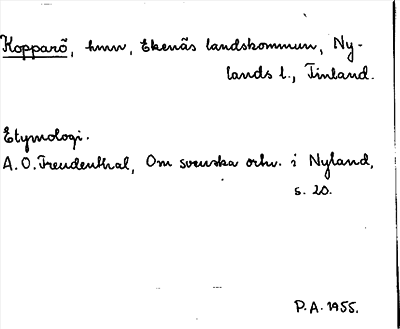 Kopparö, hmn, Ekenäs landskommun, Ny-
lands l., Finland.
Etymologi.
A.O. Freudenthal, Om svenska ortn. i Nyland,
s. 20.
P.A. 1955.